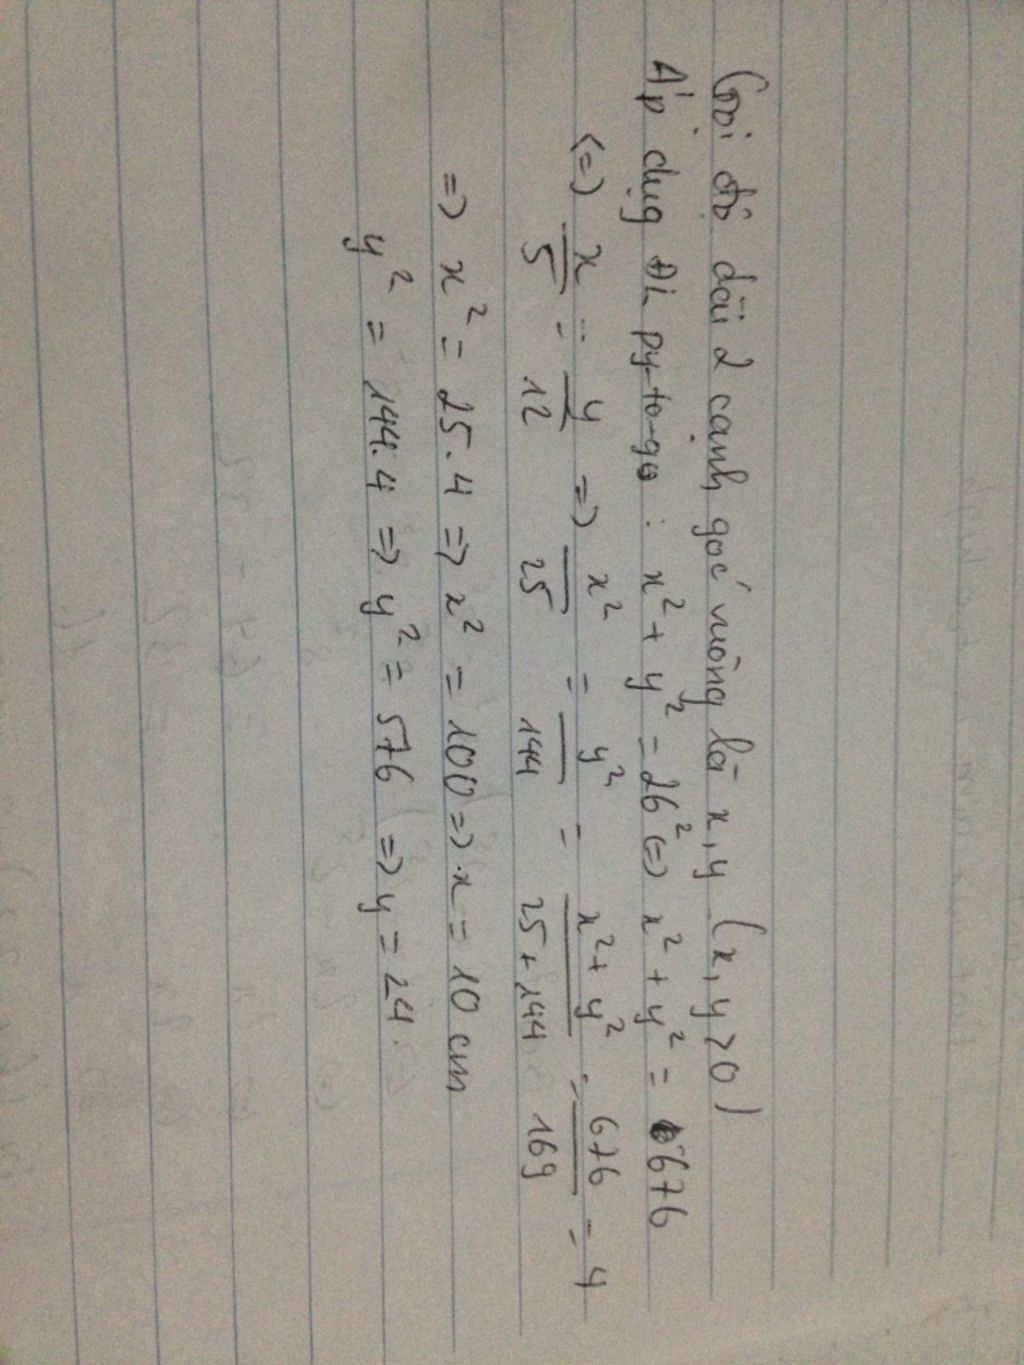 Gọi độ dài 2 cạnh góc vuông là x, y (x, y > 0)
Áp dụg ĐL py-to-go : x² + y² = 26² (=) x² + y² = 676
(=) x/5 = y/12 => x²/25 = y²/144 = x² + y²/25 + 144 = 676/169 = 4
=> x² = 25.4 => x² = 100 => x = 10 cm
y² = 144.4 => y² = 576 => y = 24.